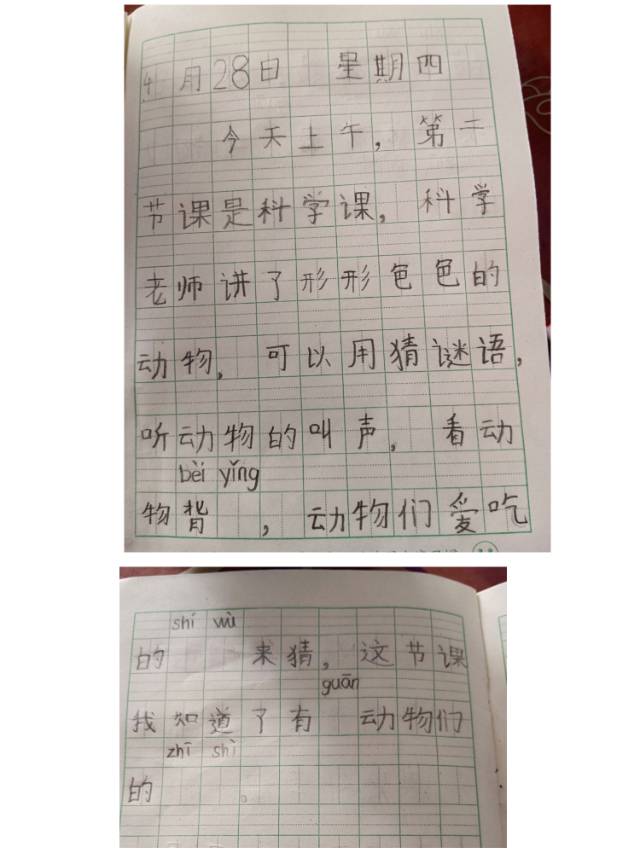 4月28日 星期四
今天上午，第二
节课是科学课，科学
老师讲了形形色色的
动物，可以用猜谜语，
听动物的叫声，看动
bèi yǐng
物背 ，动物们爱吃
shí wù
的 来猜，这节课
guān
我知道了有 动物们
zhī shi
的 。